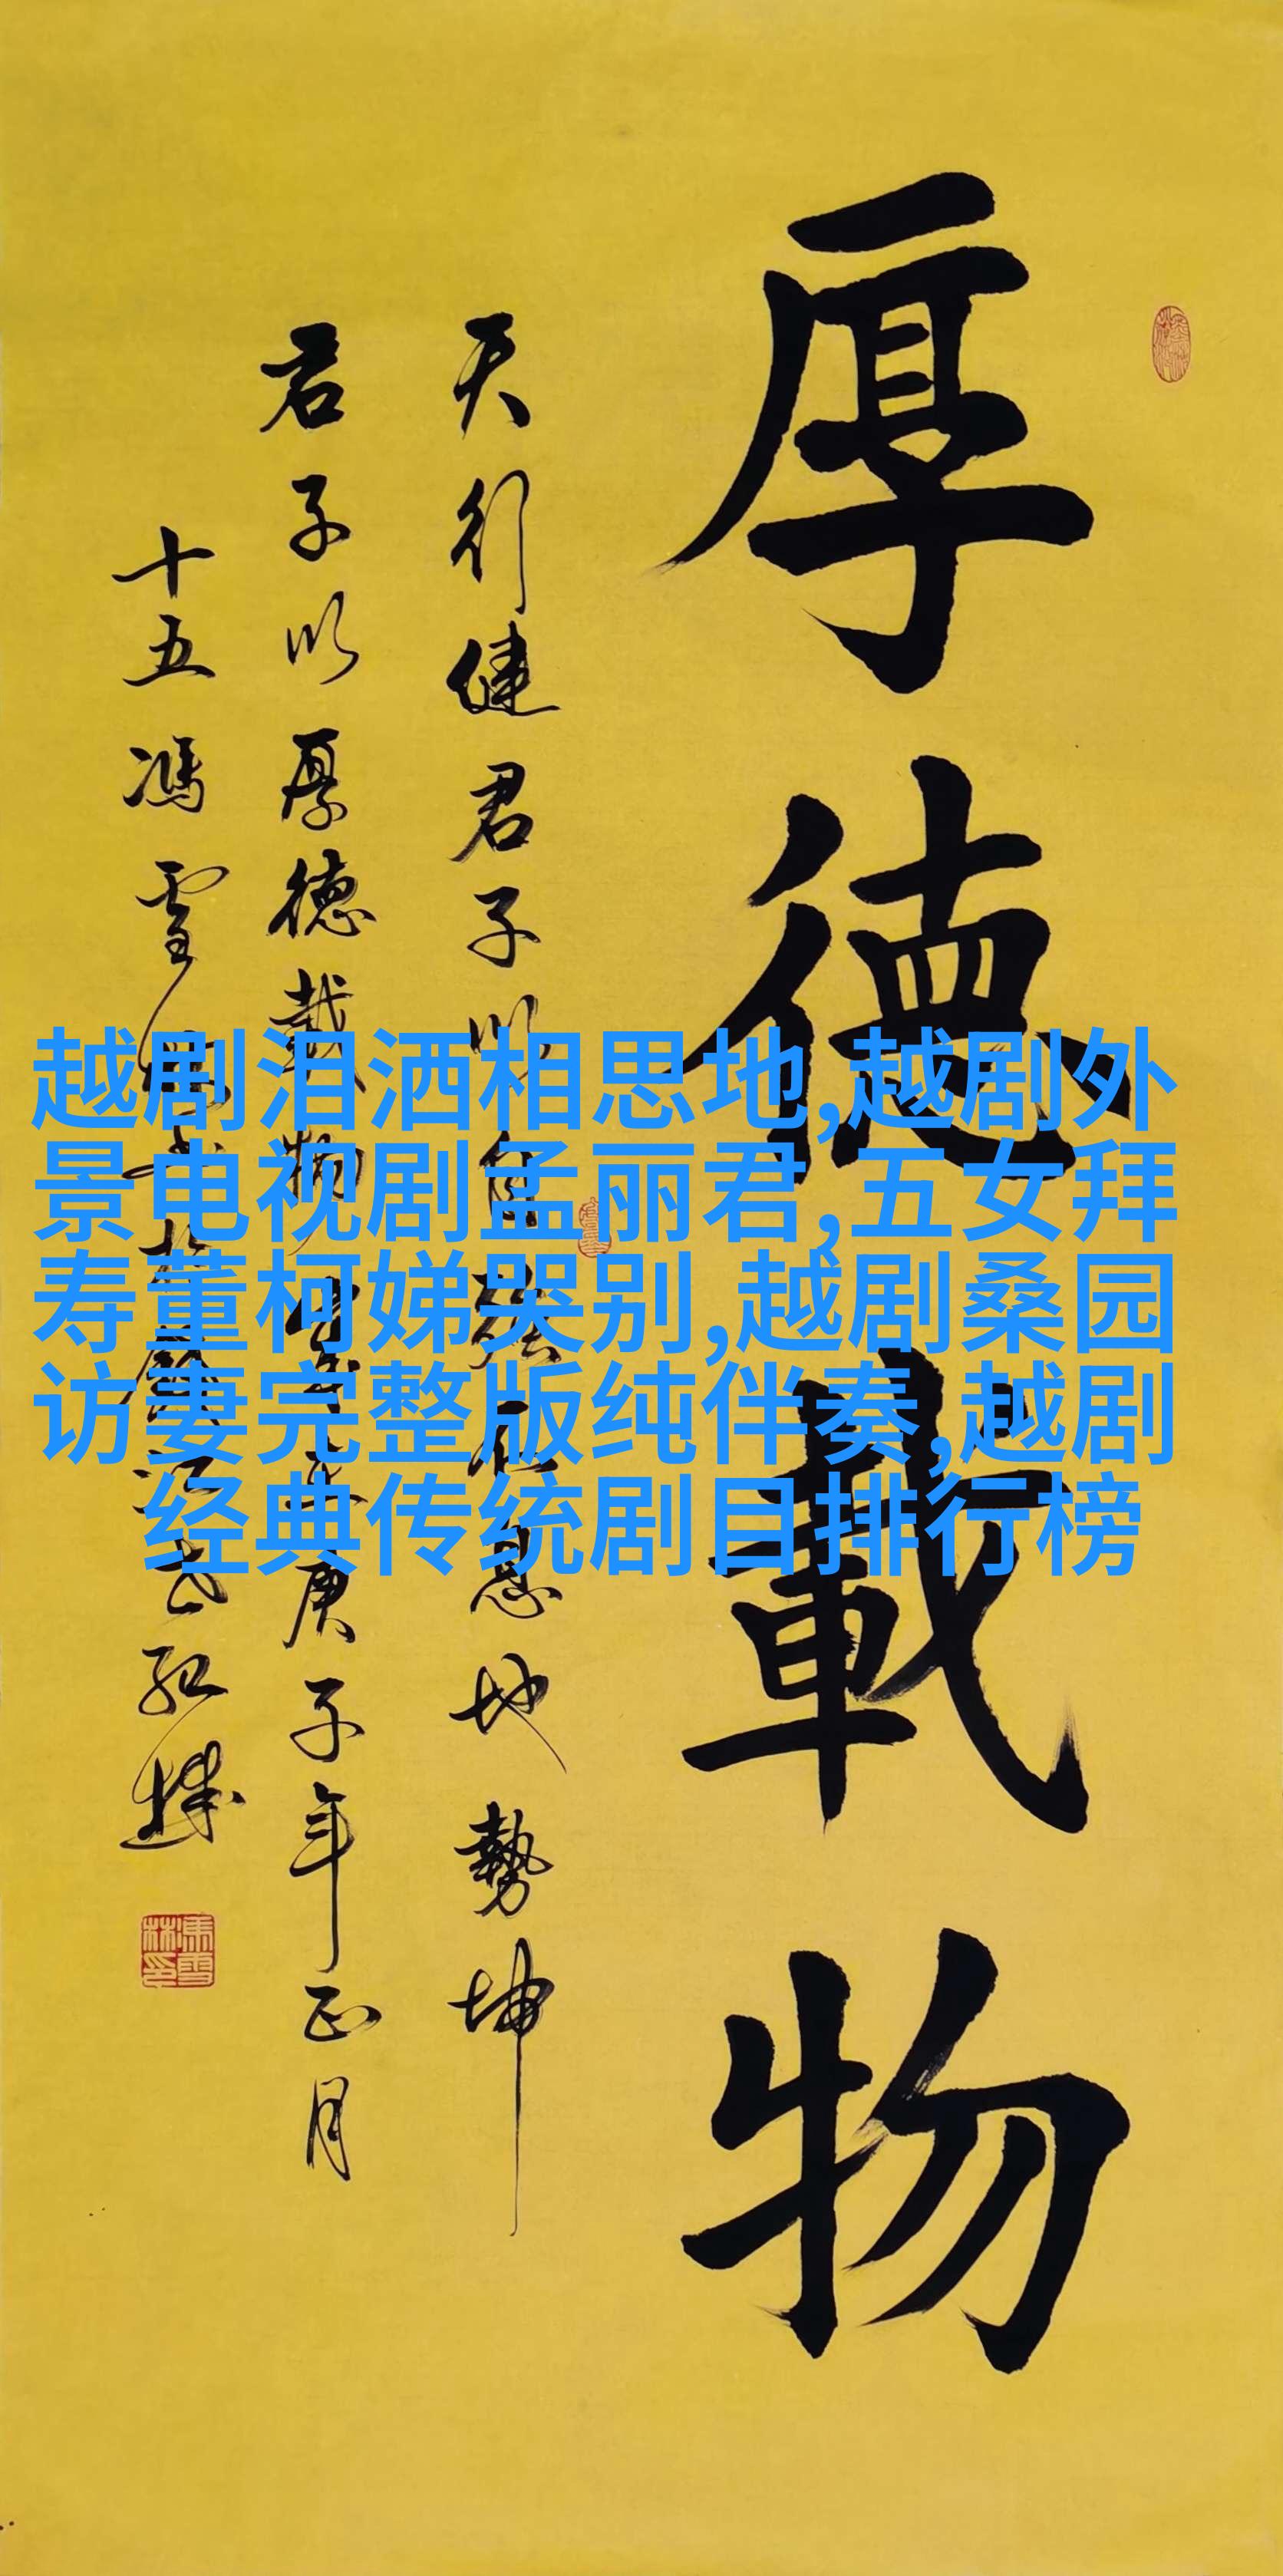 厚德載物
天行健君子以自強不息地勢坤
君子以厚德載物庚子年正月
十五馮雪林書於
馮雪林印
越剧泪洒相思地,越剧外
景电视剧孟丽君,五女拜
寿董柯娣哭别,越剧桑园
访妻完整版纯伴奏,越剧
经典传统剧目排行榜